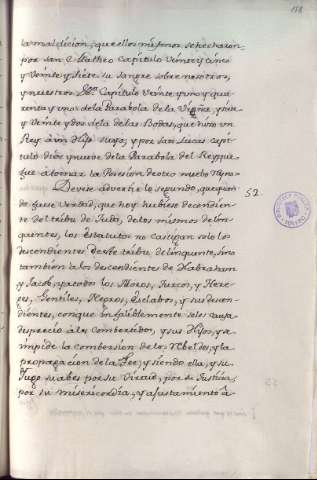 la maldicion, que ellos mismos se hecharon,
por san Matheo Capitulo veinte y cinco
y veinte y siete su sangre sobre nosotros,
y nuestros Capitulo veinte y uno y qua
renta y uno de la Parabola de la Viña, y siete
y veinte y dos de la de las Bodas, que hizo un
Rey à un Hijo suyo, y por san Lucas capi
tulo diez y nueve de la Parabola del Rey que
fue à tomar la Posesion de otro nuebo Reyno.
Devese advertir lo segundo, que quan 52.
do fuese verdad, que hoy hubiese decendien
te del tribu de Judà, de los mismos delin
quentes, los estatutos no castigan solo los
descendientes de este tribu delinquente, sino
tambien à los descendientes de Habraham
y Jacob, y à todos los Moros, Turcos, y Here
ges, Gentiles, Negros, Esclabos, y sus decen
dientes, con que infaliblemente solo causa
desprecio à los combertidos, y sus Hijos, y a
impide la combersion de los rebeldes, y la
propagacion de la Fee, y siendo ella, y su
Jugo suabes por su Virtud, por su Justicia,
por su misericordia, y ajustamiento à